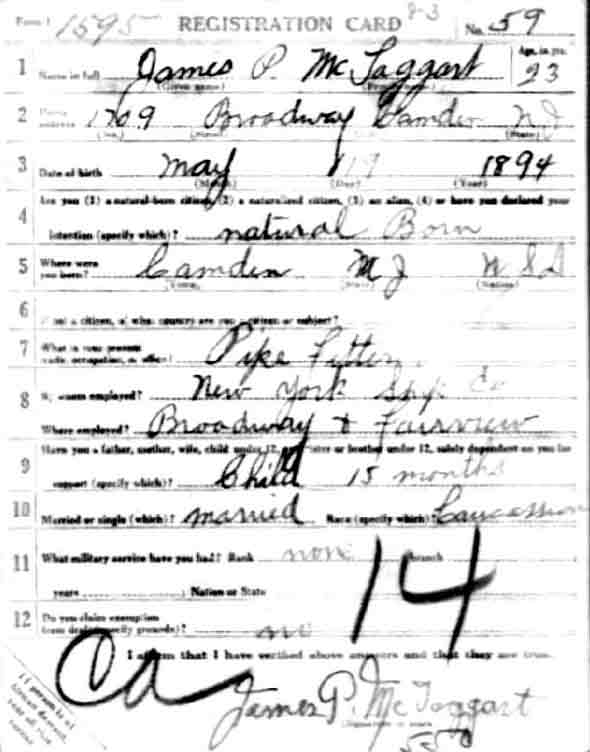 Form 1 1595 REGISTRATION CARD No. 59
1 Name in full James P. McTaggart Age, in yrs. 23
(Given name) (Family name)
2 Home address 1709 Broadway Camden NJ
(No.) (Street) (State)
3 Date of birth May 1894
(Month) (Day) (Year)
Are you (1) a natural-born citizen, (2) a naturalized citizen, (3) an alien, (4) or have you declared your
4 intention (specify which)? natural Born
5 Where were you born? Camden NJ
(Town) (State) (Nation)
6 If not a citizen, of what country are you a citizen or subject?
7 What is your present trade, occupation, or office? Pipe Fitter
8 By whom employed? New York Ship Co
Where employed? Broadway & Fairview
Have you a father, mother, wife, child under 12, or a sister or brother under 12, solely dependent on you for
9 support (specify which)? Child 15 months
10 Married or single (which)? married Race (specify which)? Caucassion
11 What military service have you had? Rank none branch
years Nation or State
12 Do you claim exemption from draft (specify grounds)? no
14
I affirm that I have verified above answers and that they are true.
Ca
James P. McTaggart
If person is of African descent, tear off this corner